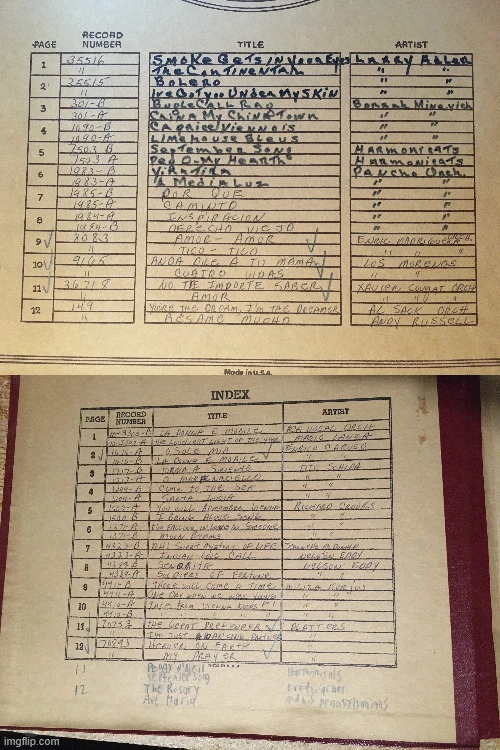 PAGE RECORD NUMBER TITLE ARTIST
1 35516 SMOKE GETS IN YOUR EYES LARRY ADLER
" THE CONTINENTAL " "
2 35515 BOLERO " "
" I'VE GOT YOU UNDER MY SKIN " "
3 301-B BUGLE CALL RAG BORRAH MINEVICH
301-A CHINA MY CHINA TOWN " "
4 1690-B CAPRICE VIENNOIS " "
1690-A LIMEHOUSE BLUES " "
5 7503 B SEPTEMBER SONG HARMONICATS
7503 A PEG O-MY HEART HARMONICATS
6 1983-B YIRA YIRA PANCHO ORCH.
1983-A A MEDIA LUZ " "
7 1985-B POR QUE " "
1985-A CAMINITO " "
8 1984-A INSPIRACION " "
1984-B DERECHO VIEJO " "
9 8083 AMOR - AMOR ENRIC MADRIGUERA ORCH.
" TICO - TICO " "
10 9165 ANDA DILE A TU MAMA LOS MORENOS
" CUATRO VIDAS " "
11 36718 NO TE IMPORTE SABER XAVIER CUGAT ORCH
" AMOR " "
12 149 YOU'RE THE DREAM, I'M THE DREAMER AL SACK ORCH
" BESAME MUCHO ANDY RUSSELL
Made in U.S.A.
INDEX
PAGE RECORD NUMBER TITLE ARTIST
1 LA DONNA E MOBILE RCA VOCAL ORCH
THE LOVELIEST NIGHT OF THE YEAR MARIO LANZA
2 1616-A O SOLE MIO ENRICO CARUSO
1616-B LA DONNA E MOBILE " "
3 1317-B TORNA A SURIENTO TITO SCHIPA
1317-A " "
4 1204-B COME TO THE SEA " "
1204-A SANTA LUCIA " "
5 YOU WILL REMEMBER VIENNA RICHARD CROOKS
I BRING A LOVE SONG " "
6 I'M FALLING IN LOVE WITH SOMEONE " "
MOON DREAMS " "
7 4323-B AH! SWEET MYSTERY OF LIFE
4323-A INDIAN LOVE CALL NELSON EDDY
8 SENORITA NELSON EDDY
SOLDIERS OF FORTUNE " "
9 4491-C THERE WILL COME A TIME
4491-A ONE DAY WHEN WE WERE YOUNG " "
10 4410-A TALES FROM VIENNA WOODS PT 1 " "
4410-B " " "
11 70753 THE GREAT PRETENDER PLATTERS
" I'M JUST A DANCING PARTNER "
12 70893 HEAVEN ON EARTH "
" MY PRAYER "
11 Peggy O'Neil Harmonicats
September Song
12 The Rosary
Ave Maria
imgflip.com